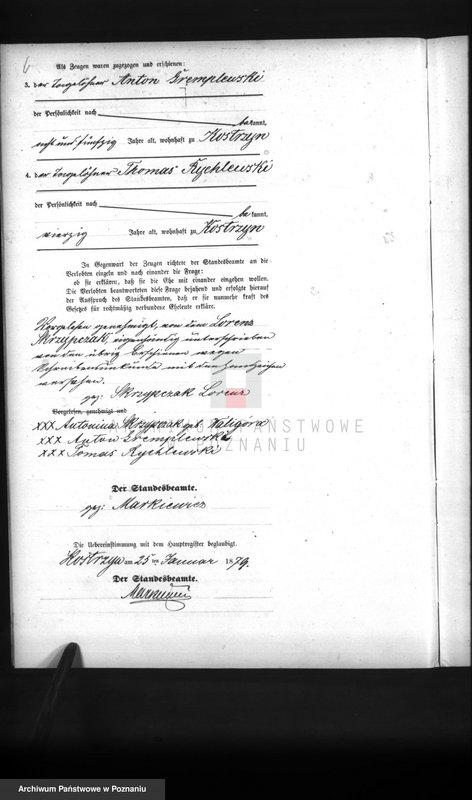 6
Als Zeugen waren zugezogen und erschienen:
3. der Tagelöhner Anton Trzemplewski
der Persönlichkeit nach
bekannt,
acht und fünfzig Jahre alt, wohnhaft zu Kostrzyn
4. der Tagelöhner Thomas Rychlewski
der Persönlichkeit nach
bekannt,
vierzig Jahre alt, wohnhaft zu Kostrzyn
In Gegenwart der Zeugen richtete der Standesbeamte an die
Verlobten einzeln und nach einander die Frage:
ob sie erklären, daß sie die Ehe mit einander eingehen wollen.
Die Verlobten beantworteten diese Frage bejahend und erfolgte hierauf
der Ausspruch des Standesbeamten, daß er sie nunmehr kraft des
Gesetzes für rechtmäßig verbundene Eheleute erkläre.
Vorgelesen genehmigt, von dem Lorenz
Skrzypczak, eigenhändig unterschrieben
von den übrig Erschienenen wegen
Schreibensunkunde mit den Handzeichen
versehen.
gez: Skrzypczak Lorenz
Vorgelesen, genehmigt und
XXX Antonina Skrzypczak geb. Waligóra
XXX Anton Trzemplewski
XXX Tomas Rychlewski
ARCHIWUM PAŃSTWOWE
W POZNANIU
Der Standesbeamte.
gez: Markiewicz
Die Uebereinstimmung mit dem Hauptregister beglaubigt.
Kostrzyn am 25 ten Januar 1879.
Der Standesbeamte.
Markiewicz
Archiwum Państwowe w Poznaniu